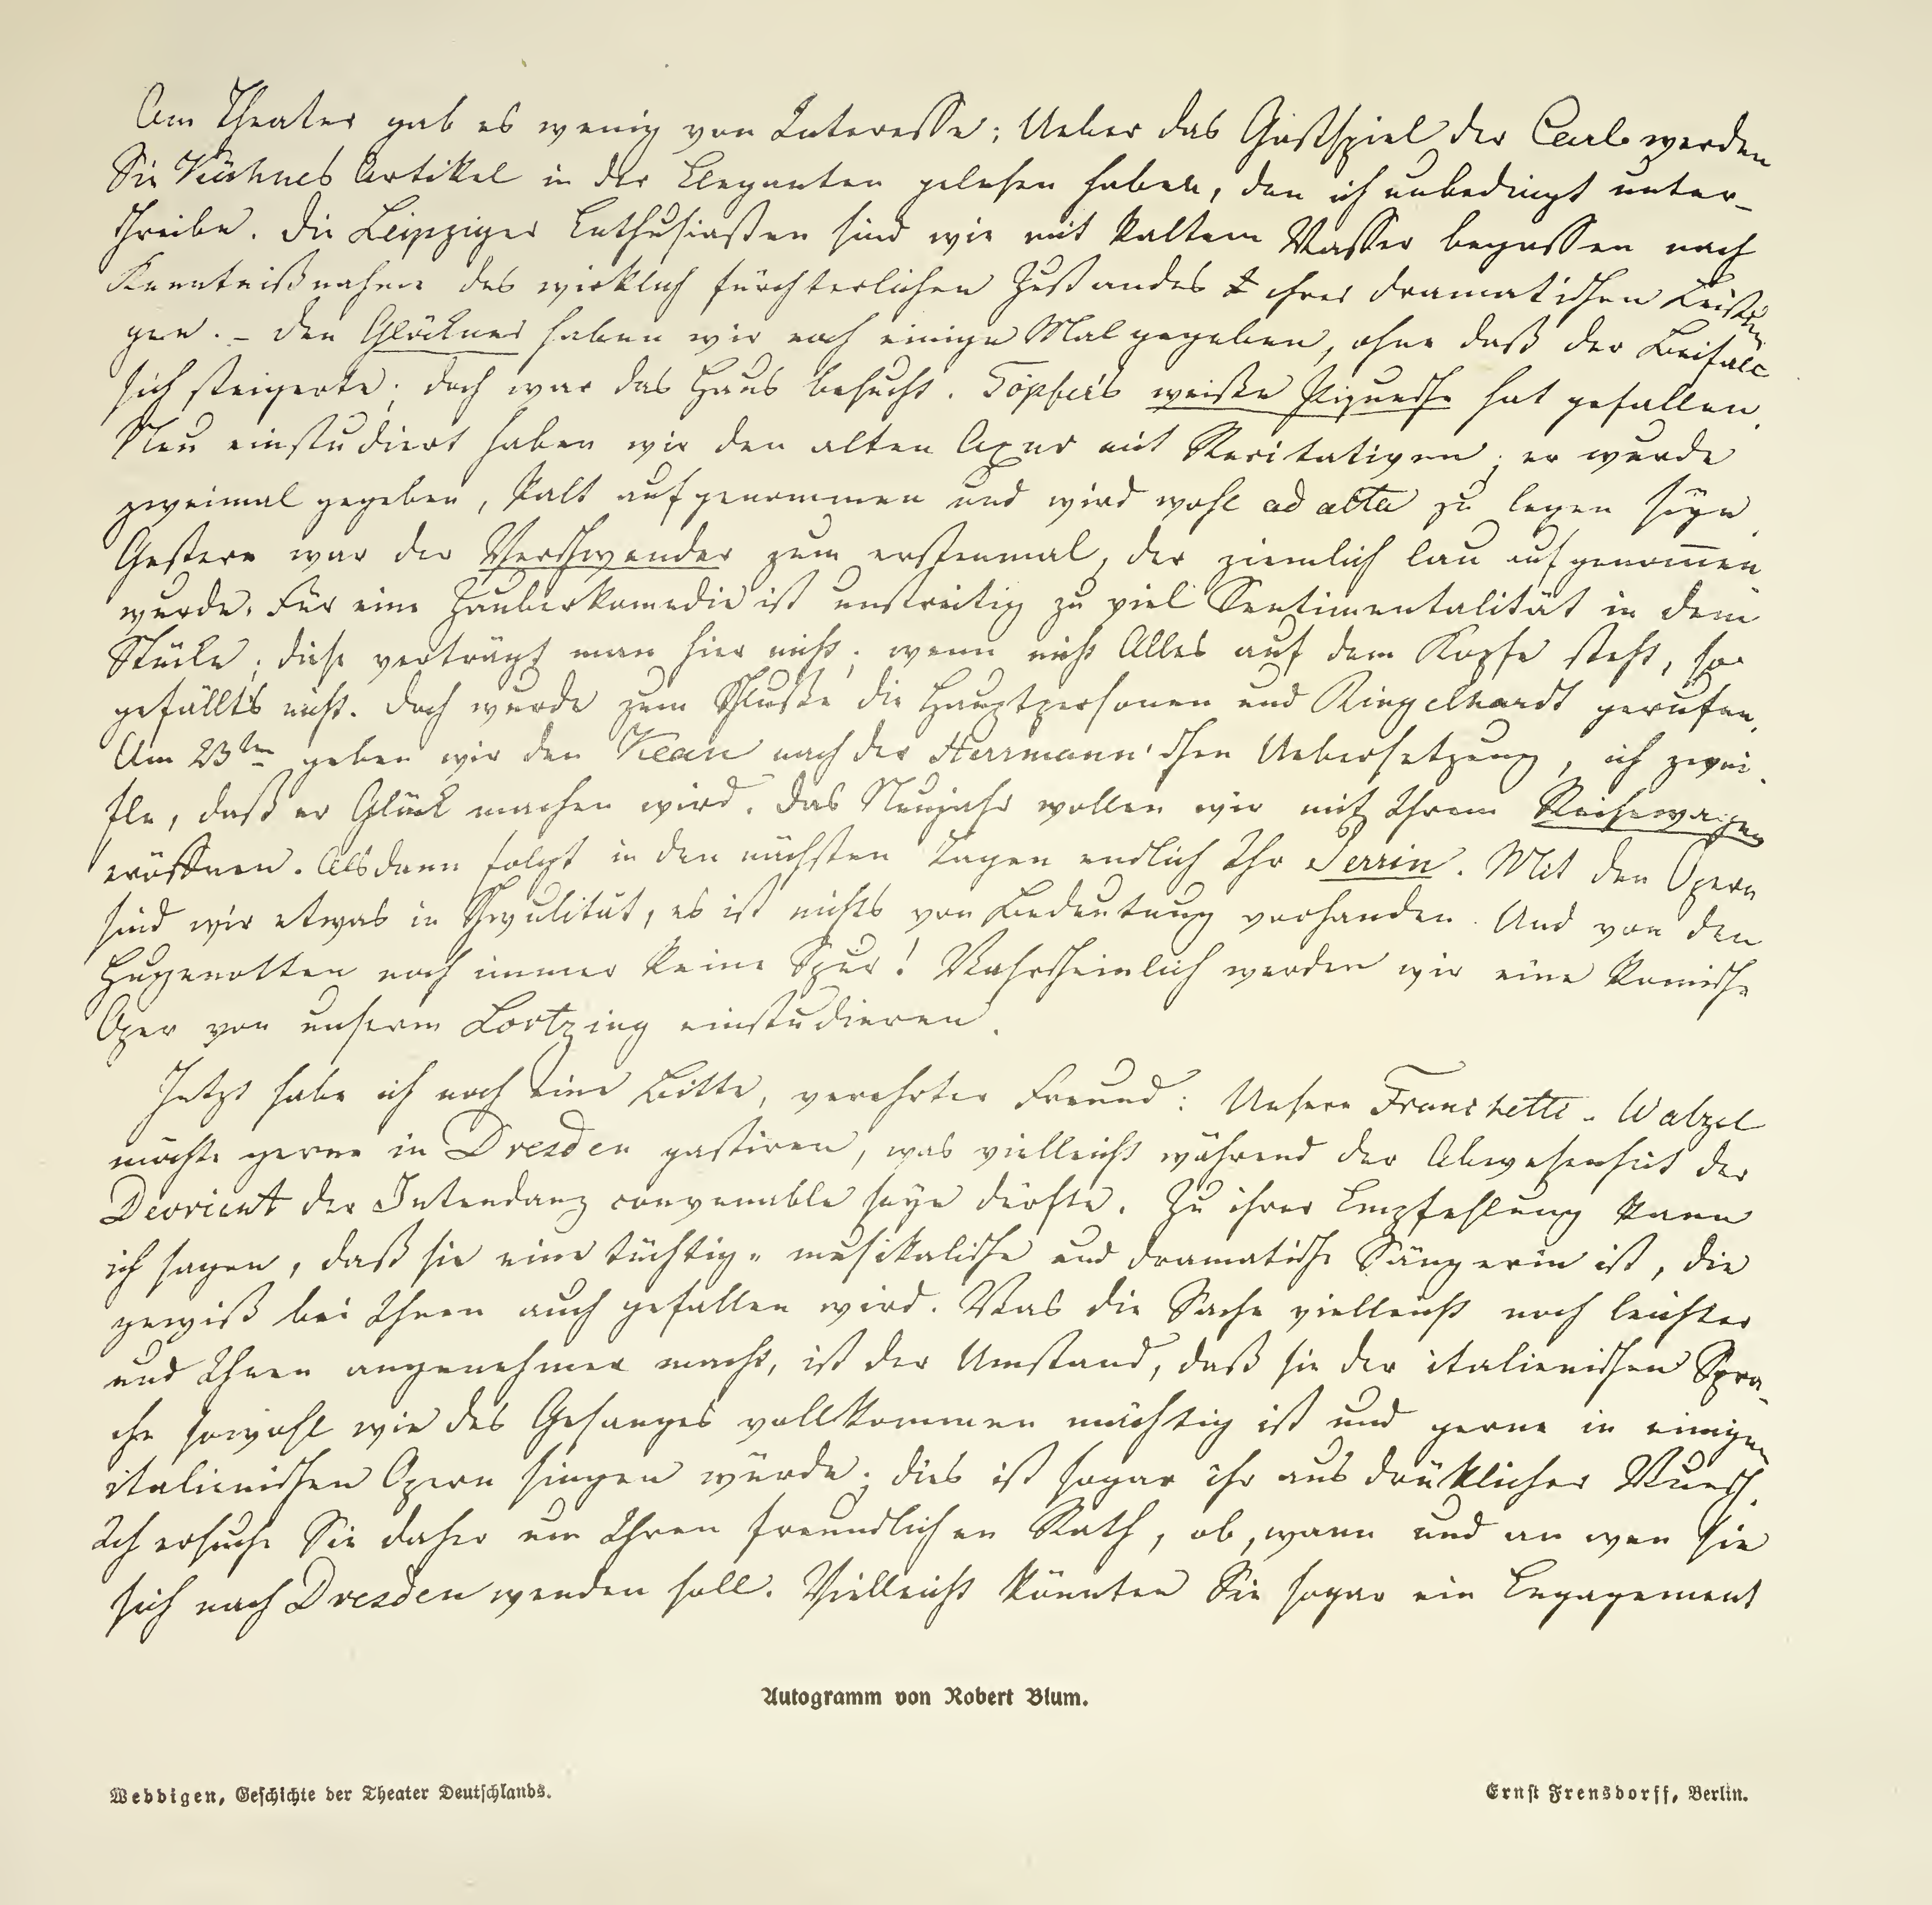 Am Theater gab es wenig von Interesse; Ueber das Gastspiel der Carl werden
Sie Kühnes Artikel in der Eleganten gelesen haben, den ich unbedingt unter-
schreibe. Die Leipziger Enthusiasten sind wie mit kaltem Wasser begossen nach
Kenntnißnahme des wirklich fürchterlichen Zustandes ihrer dramatischen Leistun
gen. – Den Glöckner haben wir noch einige Mal gegeben, ohne daß der Beifall
sich steigerte; doch war das Haus besucht. Töpfer's weiße Piquesche hat gefallen.
Neu einstudiert haben wir den alten Axur mit Recitativen; er wurde
zweimal gegeben, kalt aufgenommen und wird wohl ad acta zu legen seyn.
Gestern war der Verschwender zum erstenmal, der ziemlich lau aufgenom̅en
wurde. Für eine Zauberkomedie ist unstreitig zu viel Sentimentalität in dem
Stücke; diese verträgt man hier nicht; wenn nicht Alles auf dem Kopfe steht, so
gefällt's nicht. Doch wurde zum Schluße die Hauptpersonen und Ringelhardt gerufen.
Am 23ten geben wir den Kean nach der Herrmann'schen Uebersetzung, ich zwei-
fle, daß er Glück machen wird. Das Neujahr wollen wir mit Ihrem Reisewagen
eröffnen. Alsdann folgt in den nächsten Tagen endlich Ihr Perrin. Mit den Opern
sind wir etwas in Schwulität, es ist nichts von Bedeutung vorhanden. Und von den
Hugenotten noch immer keine Spur! Wahrscheinlich werden wir eine komische
Oper von unserm Lortzing einstudieren.
Jetzt habe ich noch eine Bitte, verehrter Freund: Unsere Franchetti-Walzel
möchte gerne in Dresden gastiren, was vielleicht während der Abwesenheit der
Devrient der Intendanz convenable seyn dürfte. Zu ihrer Empfehlung kann
ich sagen, daß sie eine tüchtig-musikalische und dramatische Sängerin ist, die
gewiß bei Ihnen auch gefallen wird. Was die Sache vielleicht noch leichter
und Ihnen angenehmer macht, ist der Umstand, daß sie der italienischen Spra-
che sowohl wie des Gesanges vollkommen mächtig ist und gerne in einigen
italienischen Opern singen würde; dies ist sogar ihr ausdrüklicher Wunsch.
Ich ersuche Sie daher um Ihren freundlichen Rath, ob, wann und an wen sie
sich nach Dresden wenden soll. Vielleicht könnten Sie sogar ein Engagement
Autogramm von Robert Blum.
Weddigen, Geschichte der Theater Deutschlands.
Ernst Frensdorff, Berlin.